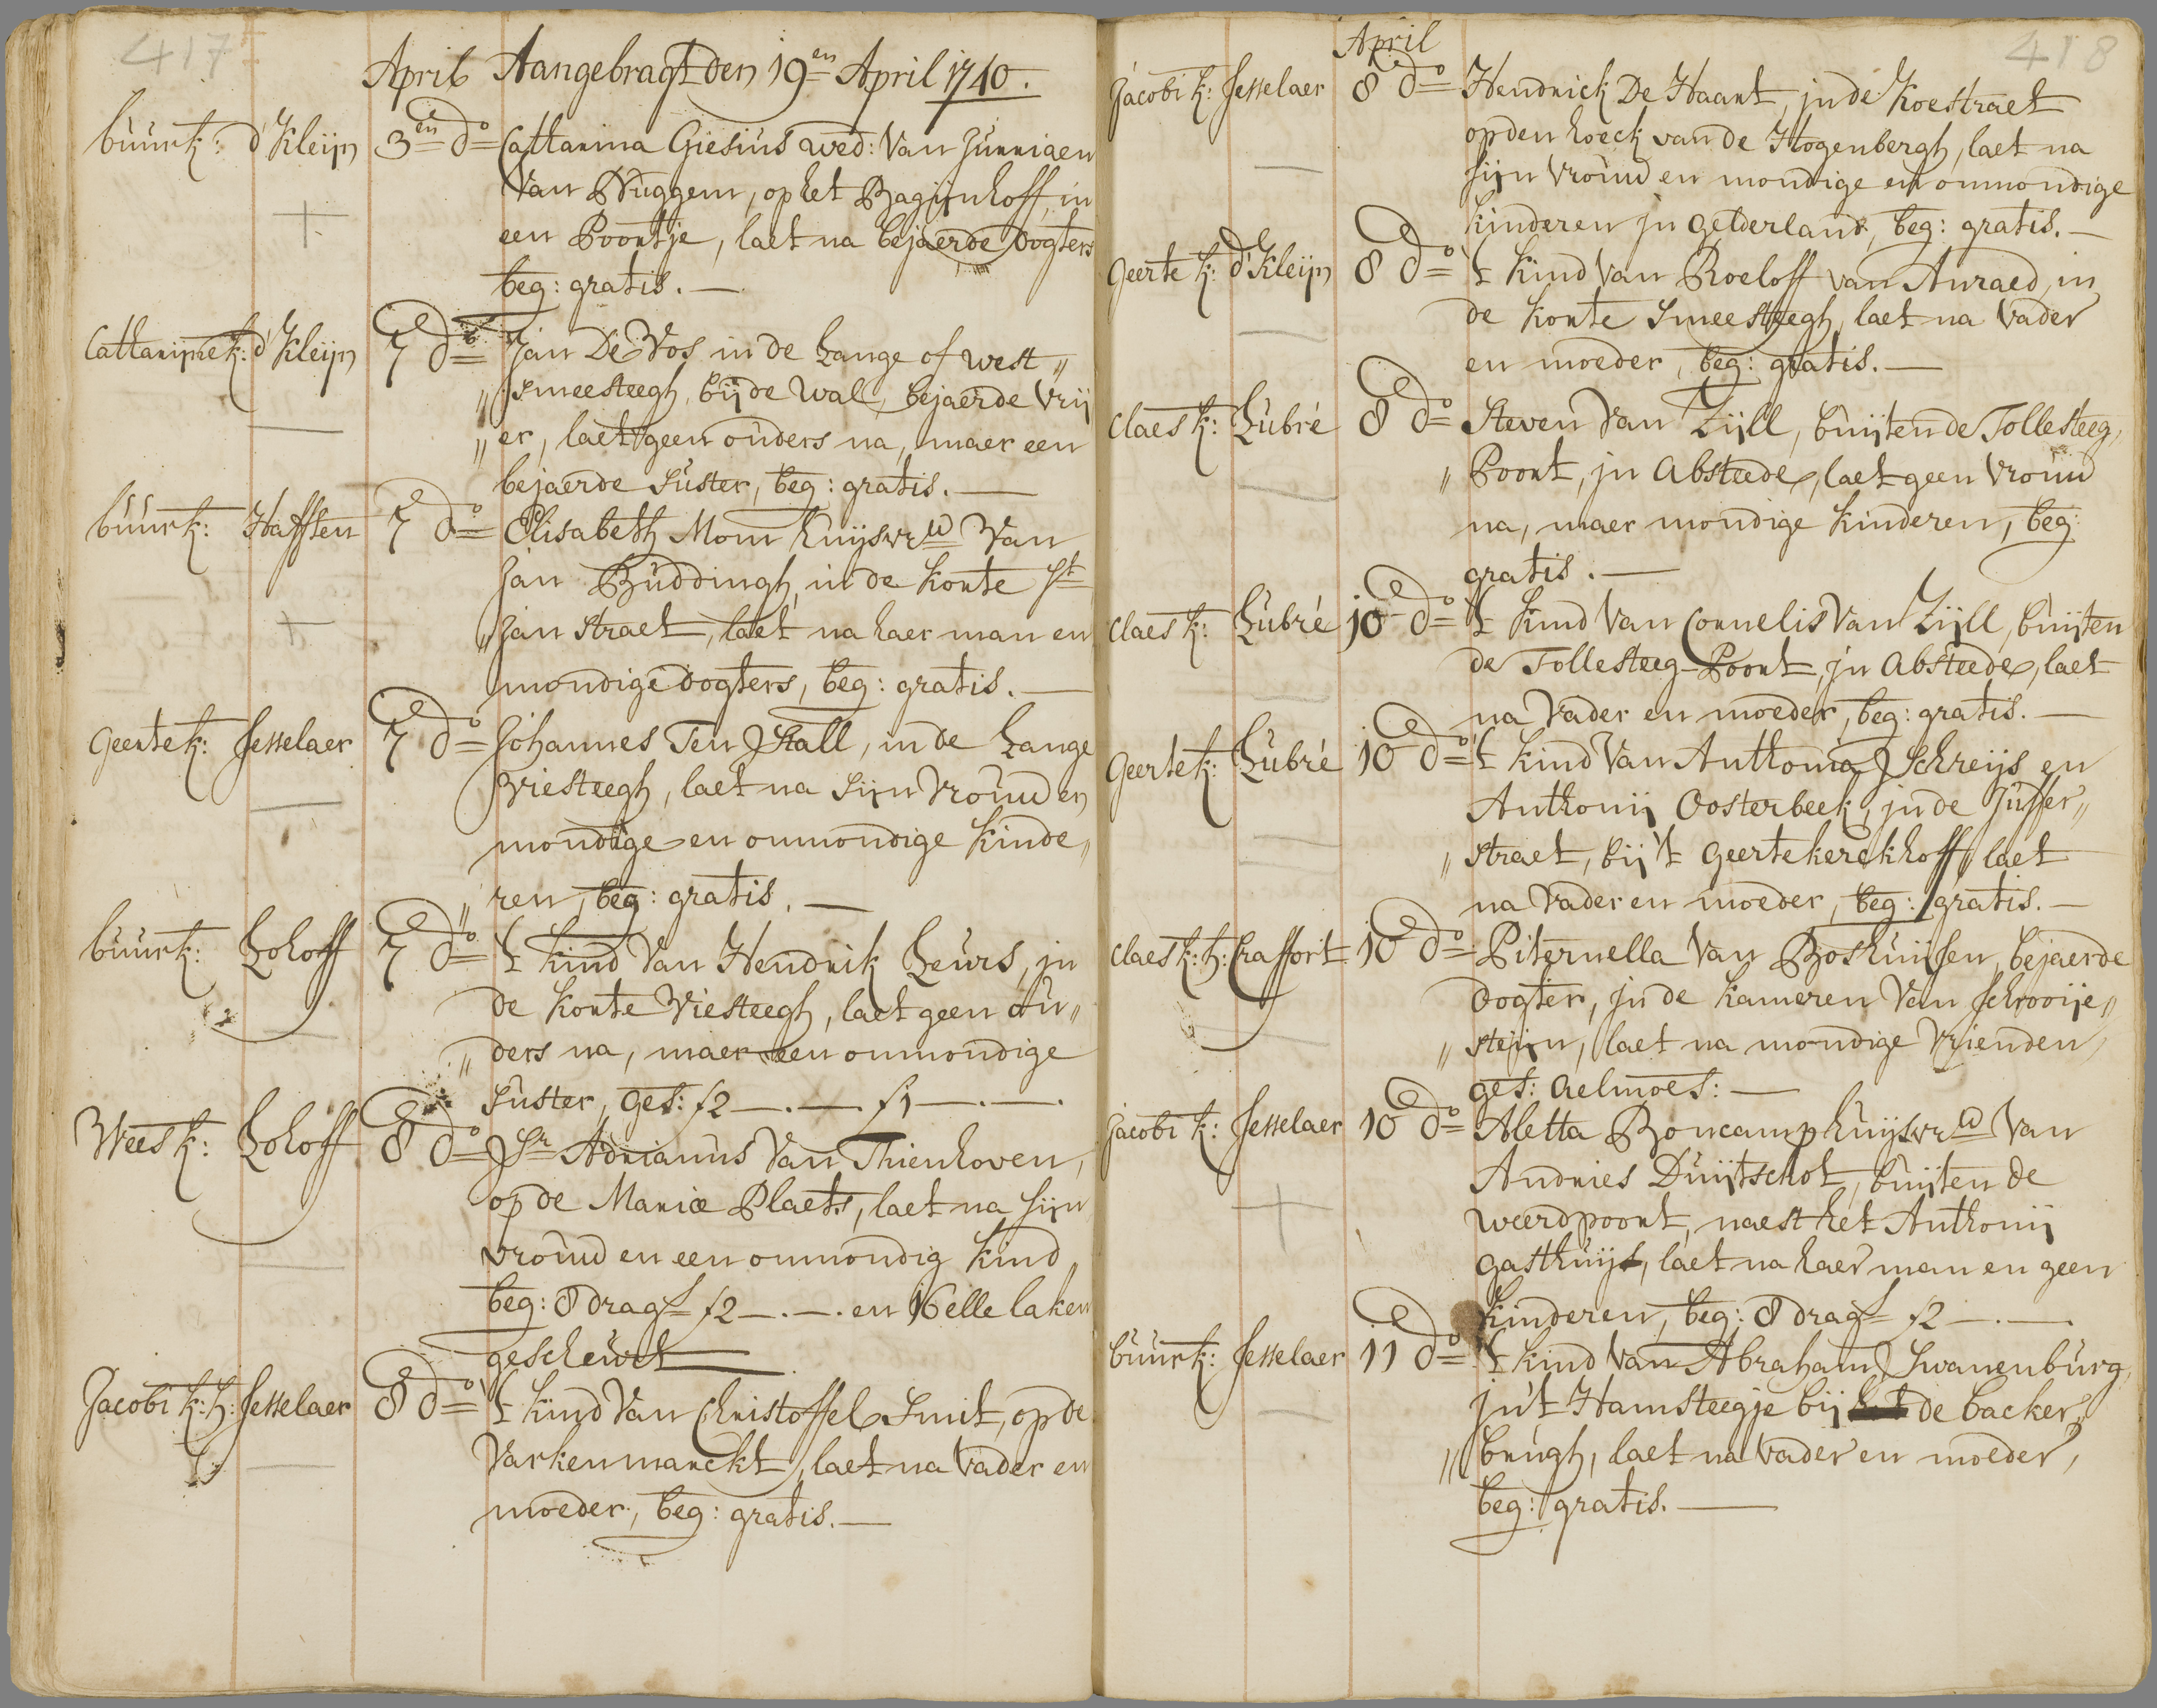 417
April Aangebragt den 19en April 1740.
buurk: d'Kleijn 3en do Cattarina Giesius wed: Van Jurriaen
Van Bruggen, op het Bagijnhoff, in
een Poortje, laet na bejaerde dogters
beg: gratis.—
Cattarijne k: d'Kleijn 7e do Jan De Vos in de Lange of west„
„smeesteegh, bij de wal, bejaerde vrij
„er, laet geen ouders na, maer een
bejaerde suster, beg: gratis.—
buurk: Hafften 7e do Elisabeth Mom huijsvrw Van
Jan Buddingh, in de korte St
„Jan straet, laet na haer man en
mondige dogters, beg: gratis.—
Geerte k: Jesselaer 7e do Johannes Ten Hall, in de Lange
Viesteegh, laet na sijn vrouw en
mondige en onmondige kinde„
„ren, beg: gratis.—
buurk: Lohoff 7e do 't kind Van Hendrik Leurs, in
de korte Viesteegh, laet geen ou„
„ders na, maer een onmondige
suster, ges: f2—.—. f1—.—.
Wees k: Lohoff 8e do Sr Adrianus Van Thienhoven,
op de Marie Plaets, laet na sijn
vrouw en een onmondig kind
beg: 8 drags f2—.—. en 16 elle laken
gescheurt—
Jacobi k: h: Jesselaer 8e do 't kind Van Christoffel Smit, op de
Varkenmarckt, laet na vader en
moeder, beg: gratis.—
418
April
Jacobi k: Jesselaer 8 do Hendrick De Haart, in de Koestraet
op den hoeck van de Hogenbergh, laet na
sijn vrouw en mondige en onmondige
kinderen in Gelderland, beg: gratis.—
Geerte k: d'Kleijn 8e do 't kind Van Roeloff van Anraed, in
de korte Smeesteegh, laet na vader
en moeder, beg: gratis.—
Claes k: Lubré 8e do Steven Van Zijll, buijten de Tollesteeg,
„Poort, in Absteede, laet geen vrouw
na, maer mondige kinderen, beg:
gratis.—
Claes k: Lubré 10e do 't kind Van Cornelis Van Zijll, buijten
de Tollesteeg-Poort, in Absteede, laet
na vader en moeder, beg: gratis.—
Geerte k: Lubré 10e do 't kind Van Anthonia Schreijs en
Anthonij Oosterbeek, in de Juffer„
„straet, bij 't Geertekerckhoff, laet
na vader en moeder, beg: gratis.—
Claes k: h: Craffort 10e do Piternella Van Boshuijsen, bejaerde
dogter, in de kameren Van Schrooije„
„steijn, laet na mondige vrienden,
ges: aelmoes:—
Jacobi k: Jesselaer 10e do Aletta Boncamp huijsvrw Van
Andries Duijtschot, buijten de
weerdpoort, naest het Anthonij
gasthuijs, laet na haer man en geen
kinderen, beg: 8 drags f2—.—
buurk: Jesselaer 11e do 't kind Van Abraham Swanenburg,
in't Hamsteegje bij de backer„
„brugh, laet na vader en moeder,
beg: gratis.—